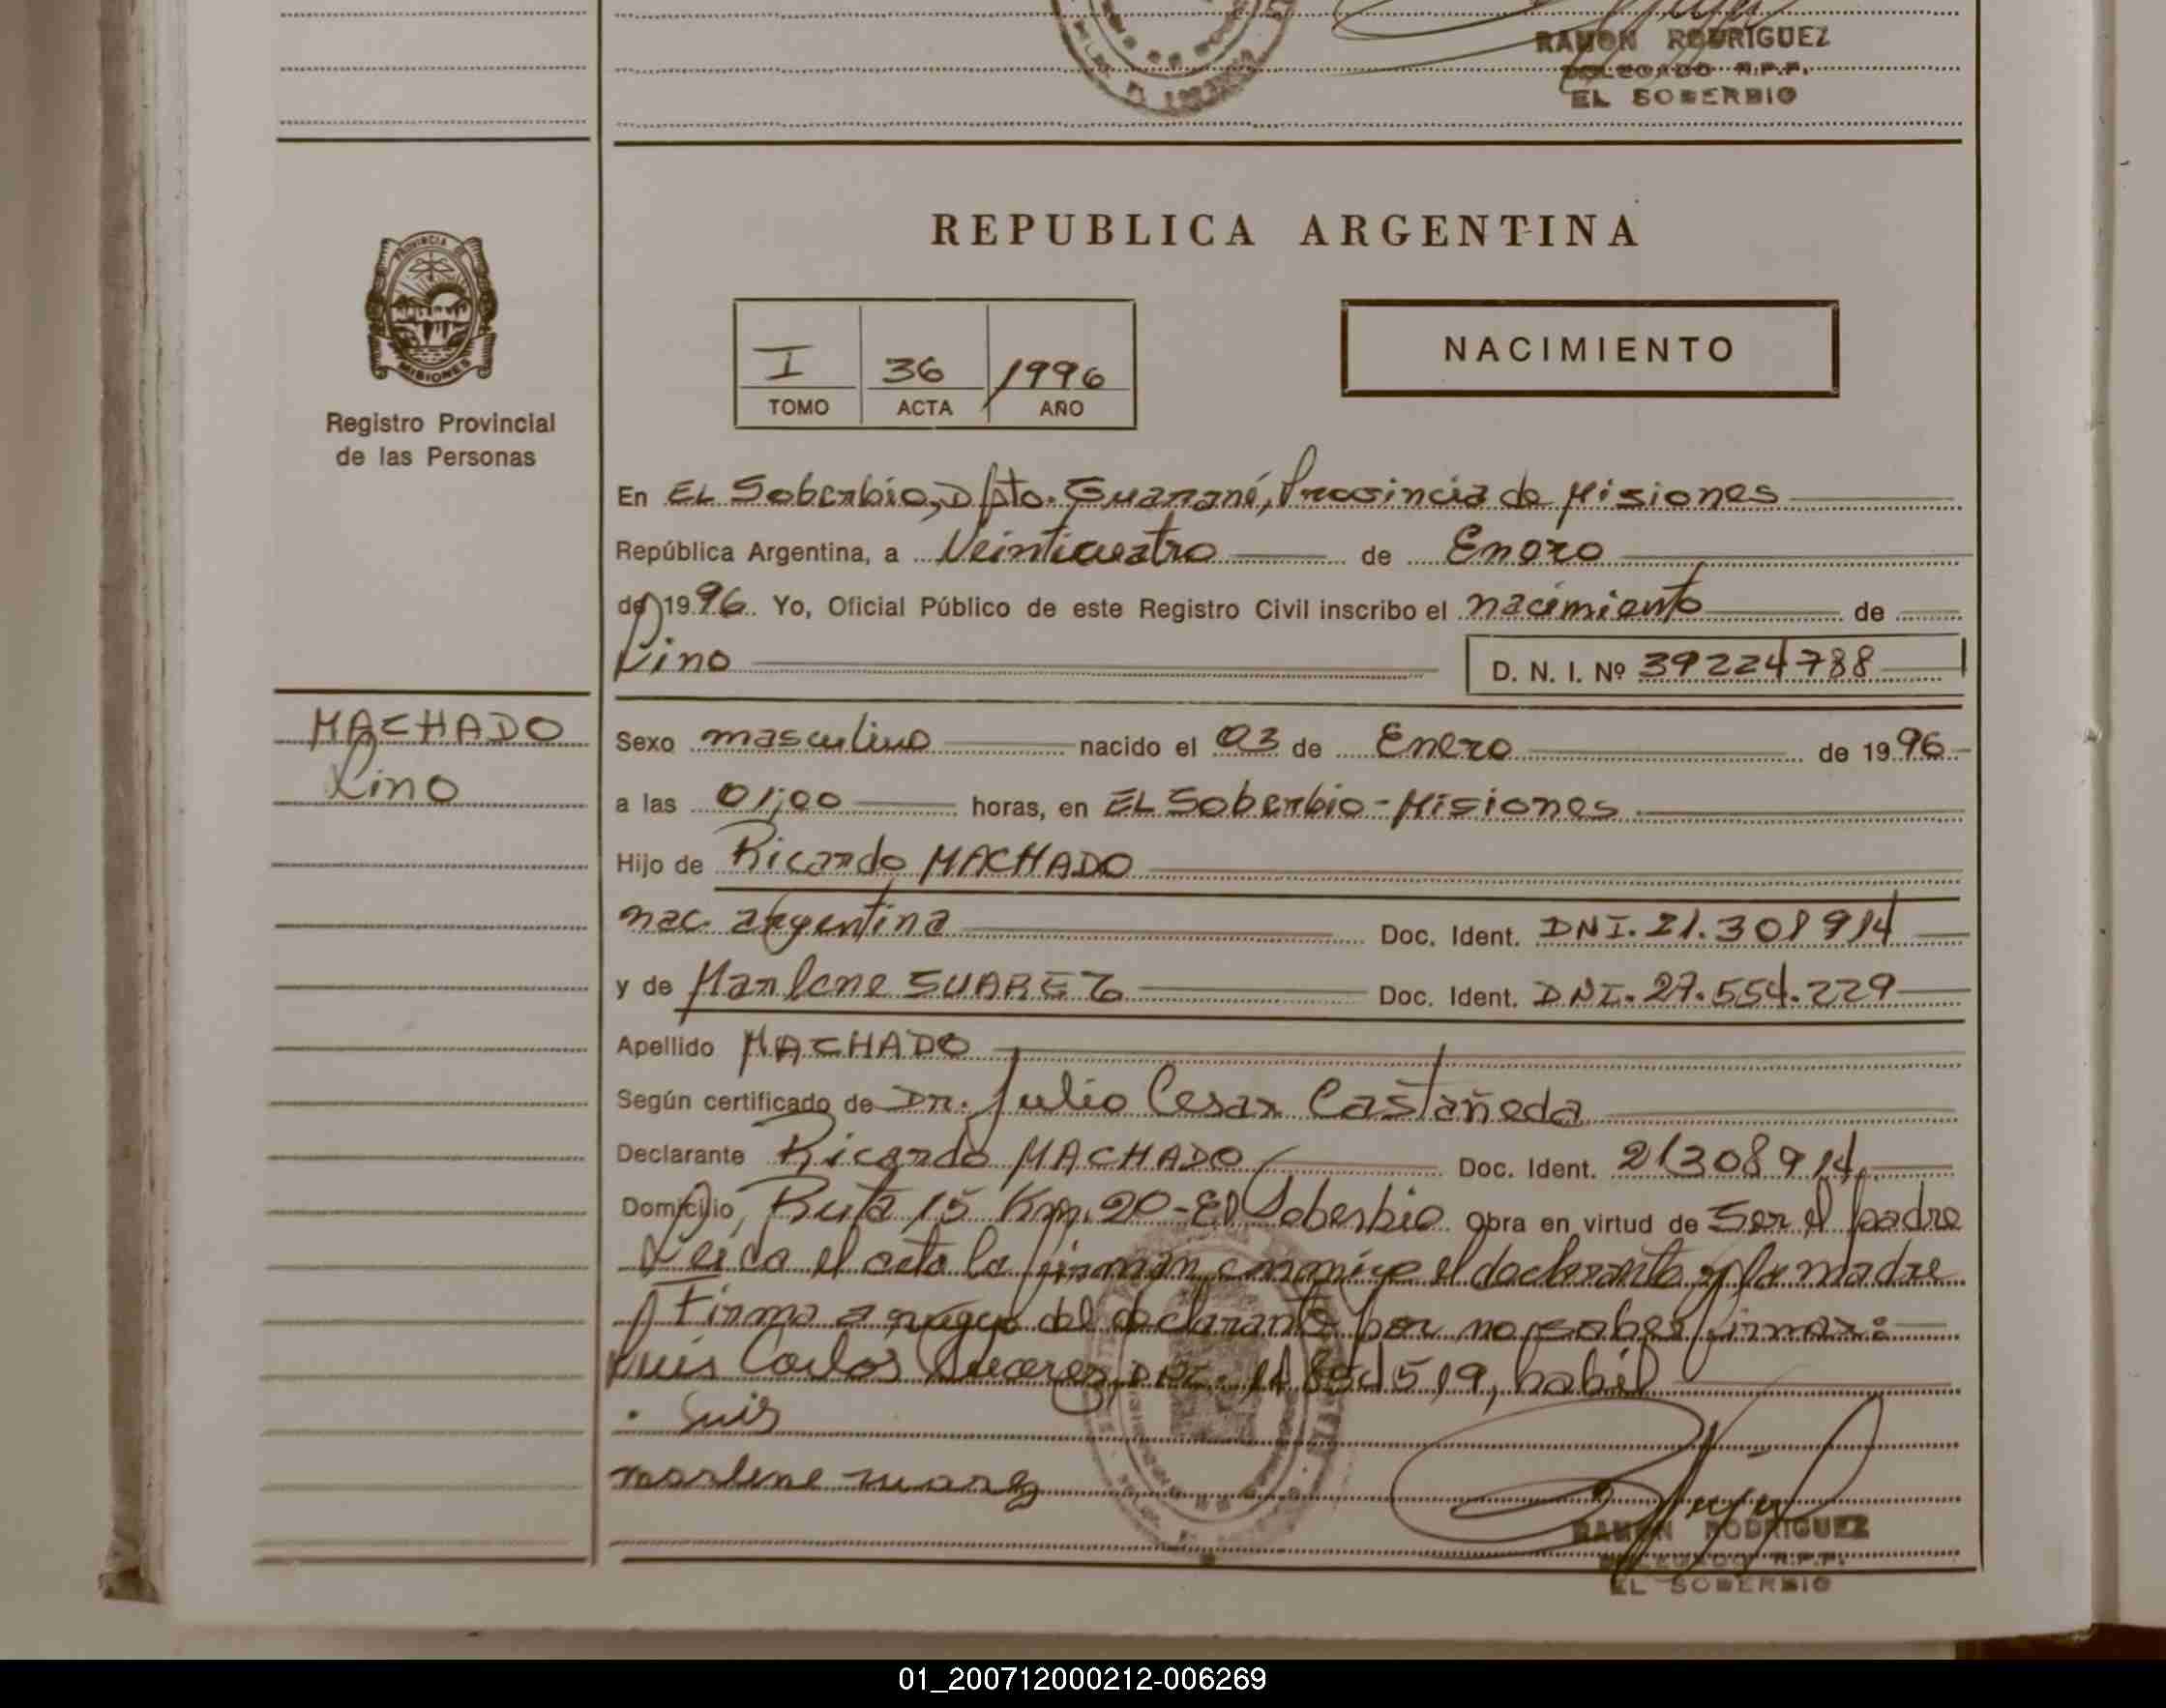 RAMON RODRIGUEZ
DELEGADO R.P.P.
EL SOBERBIO
REPUBLICA ARGENTINA
PROVINCIA
MISIONES
Registro Provincial
de las Personas
I 36 1996
TOMO ACTA AÑO
NACIMIENTO
En EL Soberbio, Dpto. Guaraní, Provincia de Misiones
República Argentina, a Veinticuatro de Enero
de 1996. Yo, Oficial Público de este Registro Civil inscribo el nacimiento de
Lino D. N. I. Nº 39224788
MACHADO
Lino
Sexo masculino nacido el 03 de Enero de 1996
a las 01;00 horas, en EL Soberbio - Misiones
Hijo de Ricardo MACHADO
nac. argentina Doc. Ident. DNI. 21.308914
y de Marlene SUAREZ Doc. Ident. DNI. 27.554.229
Apellido MACHADO
Según certificado de Dr. Julio Cesar Castañeda
Declarante Ricardo MACHADO Doc. Ident. 21308914.
Domicilio, Ruta 15 Km. 20 - El Soberbio Obra en virtud de Ser el padre
Leida el acta la firman conmigo el declarante y la madre
Firma a ruego del declarante por no saber firmar:
Luis Carlos Suarez, DNI. 519, habil
Luis
marlene suarez
RAMON RODRIGUEZ
DELEGADO R.P.P.
EL SOBERBIO
01_200712000212-006269